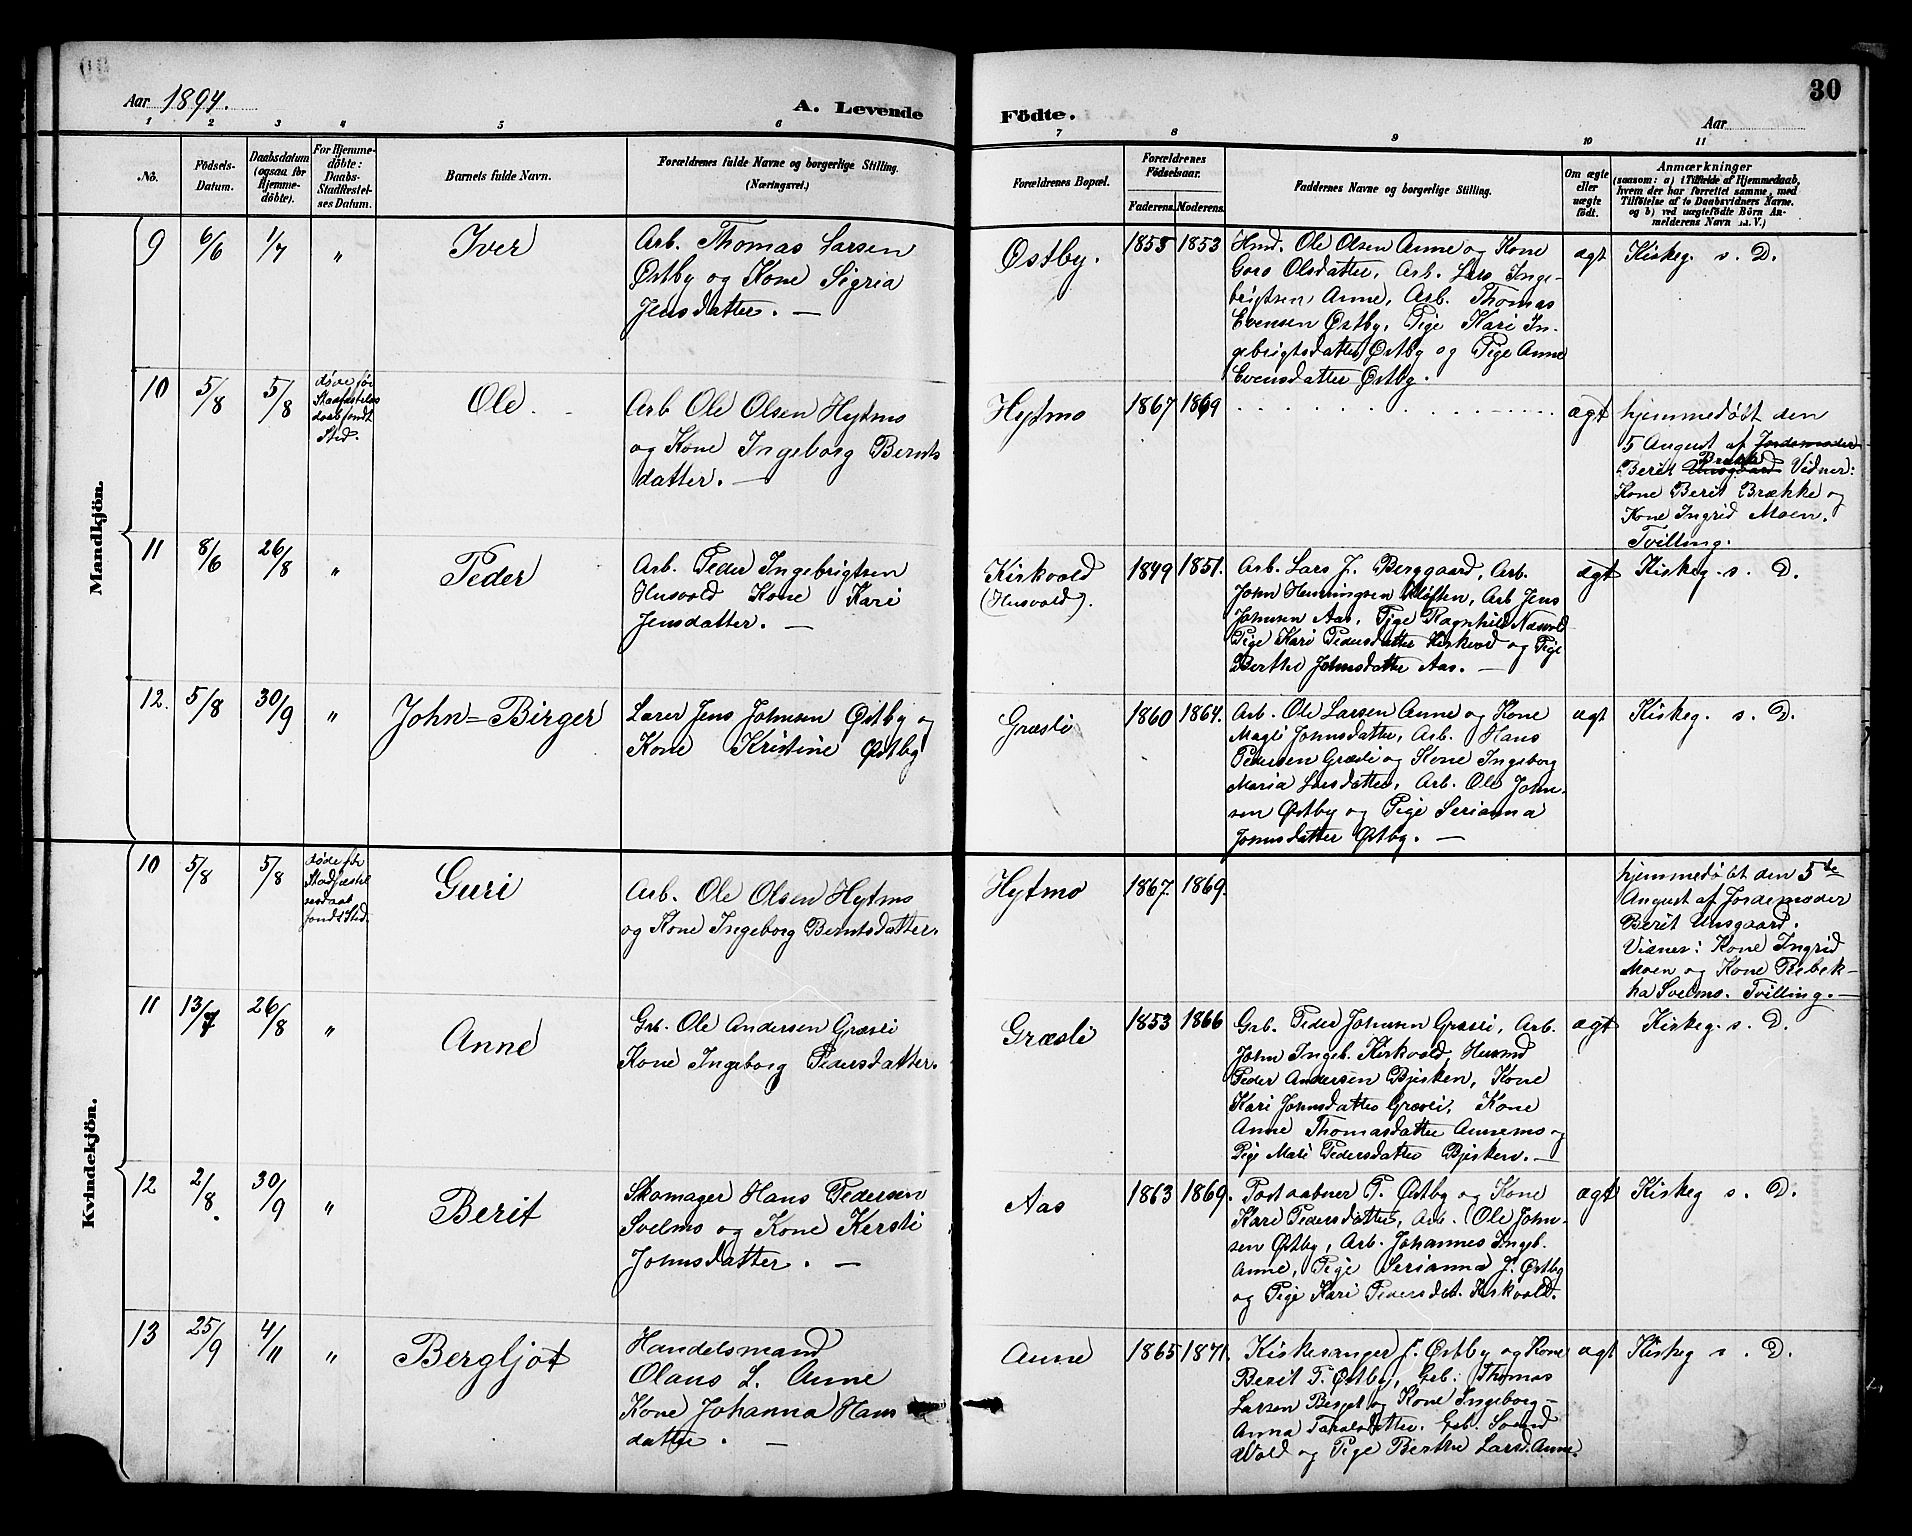 Aar 1894.
A. Levende
Födte.
30
Aar
1 2 3 4 5 6 7 8 9 10 11
No.
Födsels-
Datum.
Daabsdatum
(ogsaa for
Hjemme-
döbte).
For Hjemme-
döbte:
Daabs-
Stadfæstel-
ses Datum.
Barnets fulde Navn.
Forældrenes fulde Navne og borgerlige Stilling.
(Næringsvei.)
Forældrenes Bopæl.
Forældrenes
Födselsaar.
Faderens. Moderens.
Faddernes Navne og borgerlige Stilling.
Om ægte
eller
uægte
födt.
Anmærkninger
(saasom: a) i Tilfælde af Hjemmedaab,
hvem der har forrettet samme, med
Tilföielse af to Daabsvidners Navne.
og b) ved uægtefödte Börn An-
melderens Navn o.s.V.)
Mandkjön.
9 6/6 1/7 " Iver
Arb. Thomas Larsen
Østby og Kone Sigrid
Jensdatter. —
Østby. 1853 1853
Hmd. Ole Olsen Aune og Kone
Goro Olsdatter, Arb. Lars Inge-
brigtsen Aune, Arb. Thomas
Evensen Østby, Pige Kari In-
gebrigtsdatter Østby og Pige Anne
Evensdatter Østby.
ægt Kirkeg. s. D.
10 5/8 5/8
døde før
Stadfæstelses
daab fandt
Sted.
Ole
Arb Ole Olsen Hytmo
og Kone Ingeborg Bernts
datter. —
Hytmo 1867 1869
ægt
hjemmedøbt den
5 August af Jordemoder
Berit Brække Unsgaard Vidner:
Kone Berit Brække og
Kone Ingrid Moen.
Tvilling.
11 8/6 26/8 " Peder
Arb. Peder Ingebrigtsen
Husvold Kone Kari
Jensdatter. —
Kirkvold
(Husvold).
1849 1851.
Arb. Lars J. Berggaard, Arb.
John Henningsen Kløften, Arb Jens
Johnsen Aas, Pige Ragnhild Næsvold
Pige Kari Pedersdatter Kirkvold og Pige
Berthe Johnsdatter Aas. —
ægt Kirkeg. s. D.
12. 5/8 30/9 " John=Birger
Lærer Jens Johnsen Østby og
Kone Kristine Østby
Græsli 1860 1864.
Arb. Ole Larsen Aune og Kone
Magli Johnsdatter, Arb. Hans
Pedersen Græsli og Kone Ingeborg
Maria Larsdatter, Arb. Ole John-
sen Østby og Pige Serianna
Johnsdatter Østby. —
ægt Kirkeg. s. D.
Kvindekjön.
10 5/8 5/8
døde før
Stadfæstel
sesdaab
fandt Sted.
Guri
Arb. Ole Olsen Hytmo
og Kone Ingeborg Berntsdatter.
Hytmo 1867. 1869.
hjemmedøbt den 5te
August af Jordemoder
Berit Unsgaard.
Vidner: Kone Ingrid
Moen og Kone Rebek-
ka Svelmo. Tvilling. —
11 13/7 26/8 " Anne
Grb. Ole Andersen Græsli
Kone Ingeborg Pedersdatter.
Græsli 1853 1866
Grb. Peder Johnsen Græsli, Arb.
John Ingeb. Kirkvold, Husmd
Peder Andersen Bjirken, Kone
Kari Johnsdatter Græsli, Kone
Anne Thomasdatter Aunemo og
Pige Mari Pedersdatter Bjirken. —
ægt Kirkeg. s. D.
12 2/8 30/9 " Berit
Skomager Hans Pedersen
Svelmo og Kone Kersti
Johnsdatter. —
Aas 1863 1869.
Postaabner P. Østby og Kone
Kari Pedersdatter, Arb. Ole John-
sen Østby, Arb. Johannes Ingeb.
Aune, Pige Serianna J. Østby
og Pige Kari Pedersdat. Kirkvold.
ægt Kirkeg s. D.
13 25/9 4/11 " Bergljot
Handelsmand
Olaus L. Aune
Kone Johanna Hans
datter. —
Aune 1865 1871.
Kirkesanger J. Østby og Kone
Berit T. Østby, Grb. Thomas
Larsen Berget og Kone Ingeborg-
Anna Taraldsdatter. Grb. Svend
Wold og Pige Berthe Larsd. Aune.
ægt Kirkeg s. D.